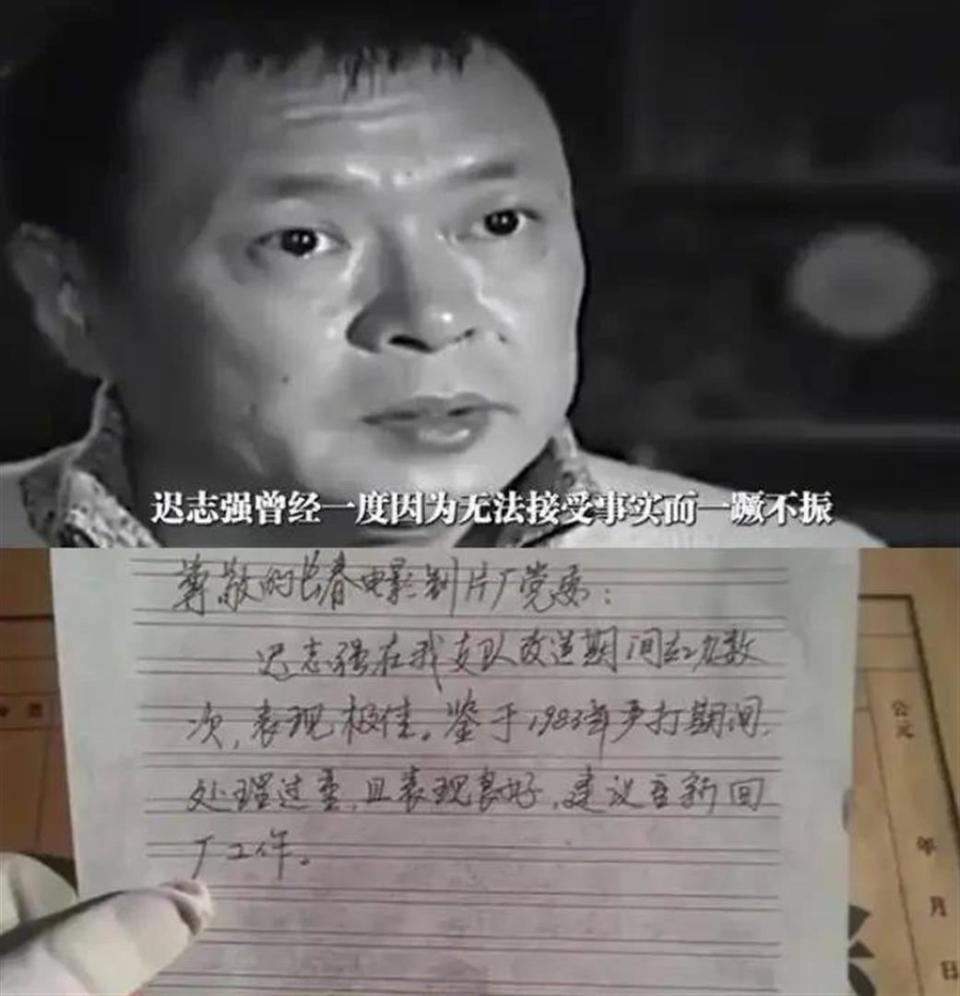 迟志强曾经一度因为无法接受事实而一蹶不振
尊敬的长春电影制片厂党委：
迟志强在我支队改造期间立功数
次，表现极佳。鉴于1983年严打期间
处理过重，且表现良好，建议重新回
厂工作。
公元
年
月
日